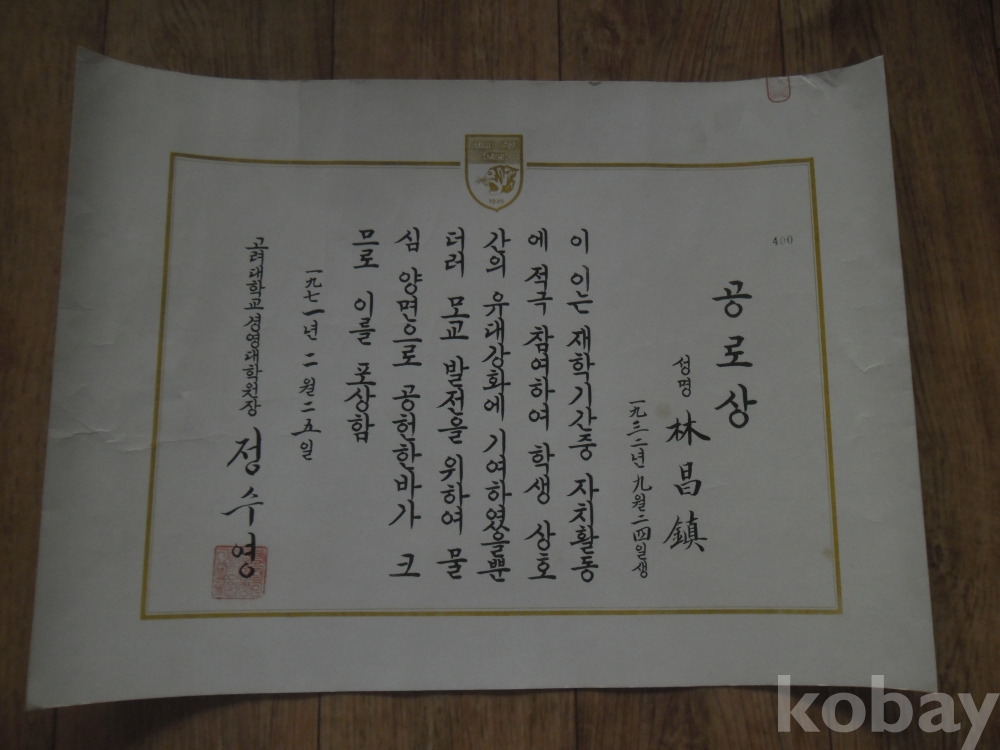 400
공로상
성명 林昌鎮
一九三二년 九월 二四일생
이 인는 재학기간중 자치활동
에 적극 참여하여 학생 상호
간의 유대강화에 기여하였을뿐
더러 모교 발전을 위하여 물
심 양면으로 공헌한바가 크
므로 이를 포상함
一九七一년 二월 二五일
고려대학교 경영대학원장 정수영
kobay